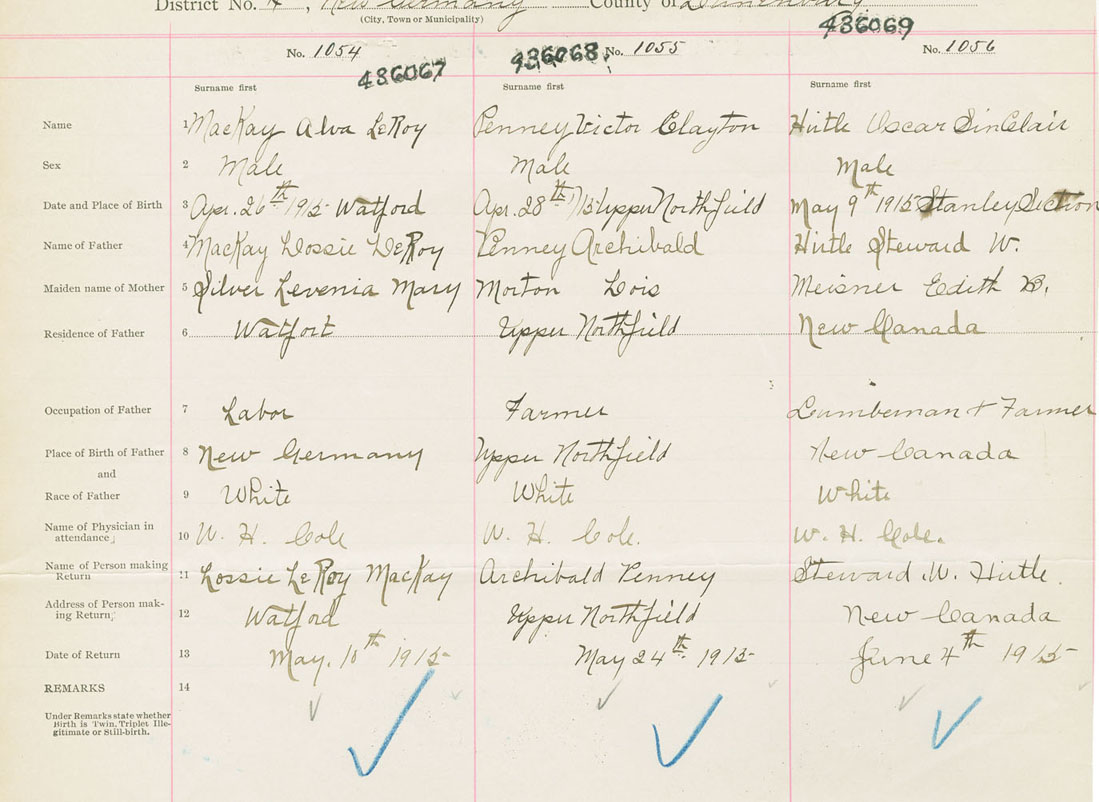 District No. 4, New Germany County of Lunenburg
(City, Town or Municipality)
No. 1054 436067 436068 No. 1055 436069 No. 1056
Surname first Surname first Surname first
Name 1 MacKay Alva LeRoy Penney Victor Clayton Hirtle Oscar SinClair
Sex 2 Male Male Male
Date and Place of Birth 3 Apr. 26th 1915 Watford Apr. 28th /15 Upper Northfield May 9th 1915 Stanley Section
Name of Father 4 MacKay Lossie LeRoy Penney Archibald Hirtle Steward W.
Maiden name of Mother 5 Silver Levenia Mary Morton Lois Meisner Edith B.
Residence of Father 6 Watfort Upper Northfield New Canada
Occupation of Father 7 Labor Farmer Lumberman + Farmer
Place of Birth of Father 8 New Germany Upper Northfield New Canada
and
Race of Father 9 White White White
Name of Physician in
attendance 10 W. H. Cole W. H. Cole. W. H. Cole.
Name of Person making
Return 11 Lossie LeRoy MacKay Archibald Penney Steward W. Hirtle.
Address of Person mak-
ing Return, 12 Watford Upper Northfield New Canada
Date of Return 13 May. 10th 1915 May 24th 1915 June 4th 1915
REMARKS 14
Under Remarks state whether
Birth is Twin, Triplet Ille-
gitimate or Still-birth.